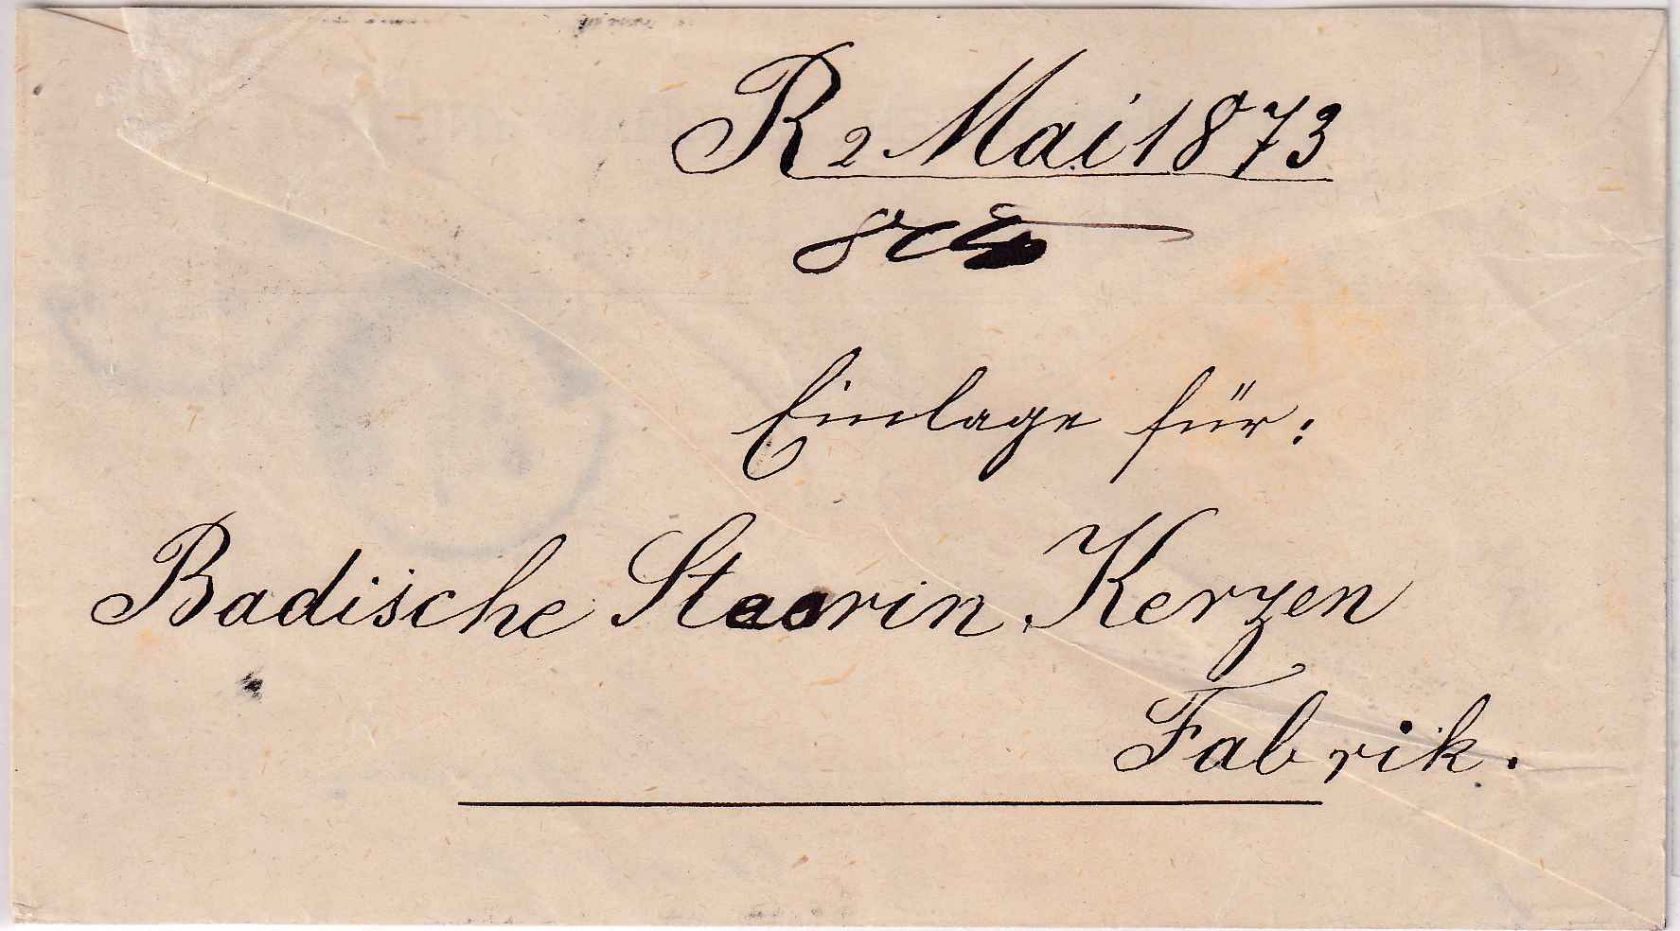 R 2 Mai 1873
Einlage für:
Badische Stearin Kerzen
Fabrik.